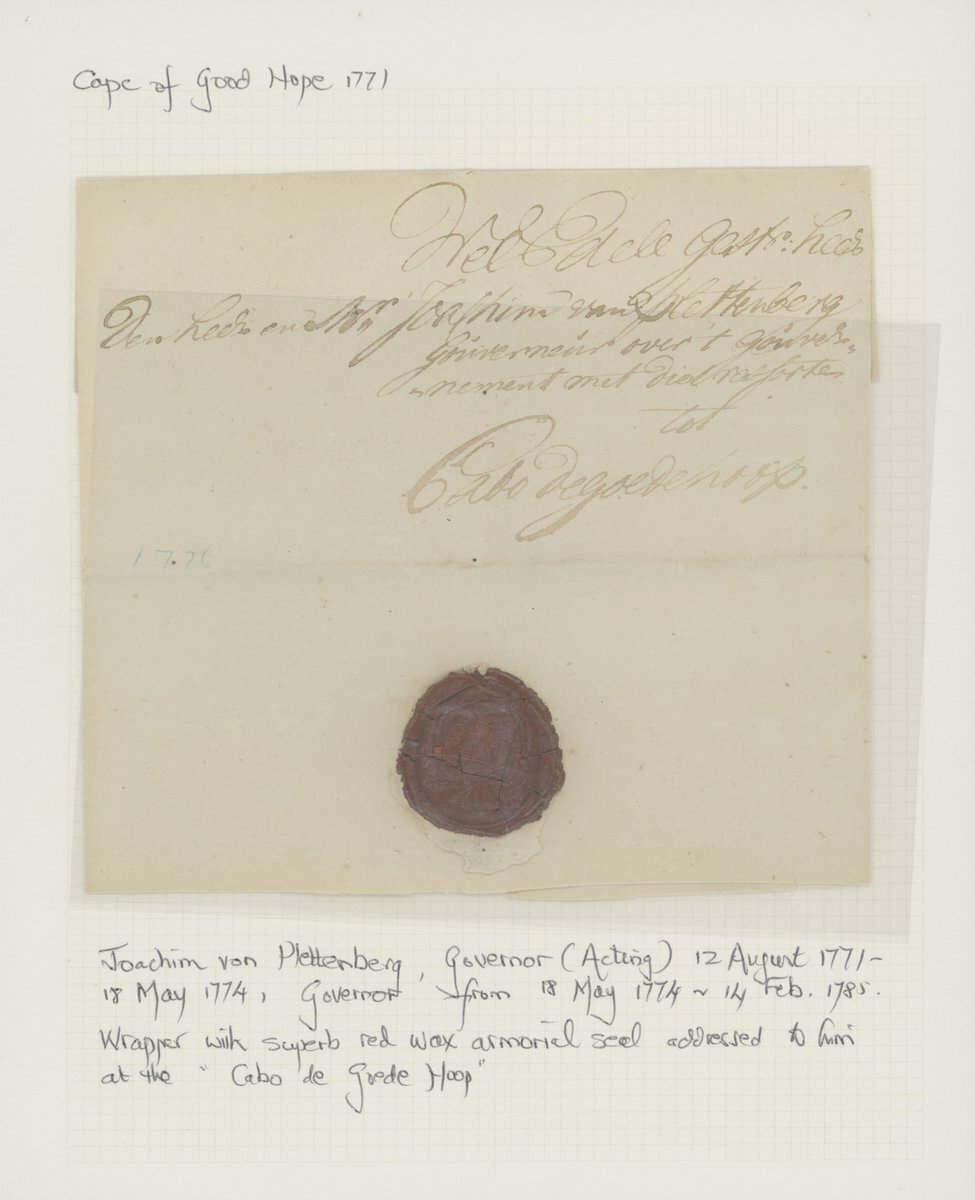 Cape of Good Hope 1771
Wel Edele Gestr: heer
Den heer en Mr Joachim van Plettenberg
Gouverneur over 't Gouver„
„nement met dies ressorten
tot
Cabo de goede hoop.
1776
Joachim von Plettenberg, Governor (Acting) 12 August 1771 -
18 May 1774, Governor from 18 May 1774 ~ 14 Feb. 1785.
Wrapper with superb red wax armorial seal addressed to him
at the "Cabo de Goede Hoop"